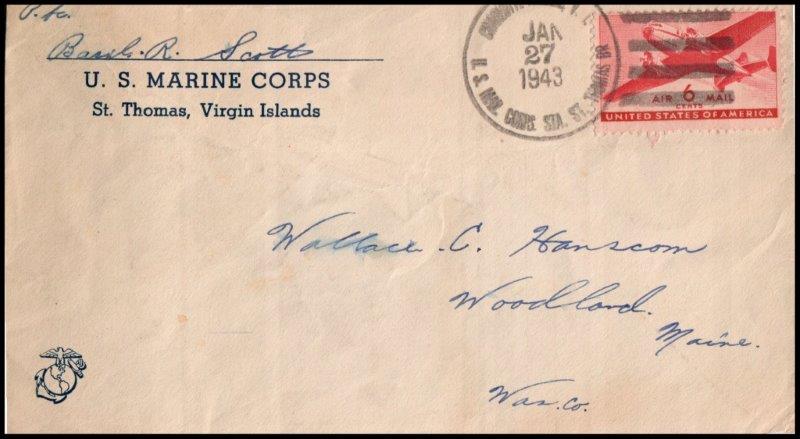 Basil R. Scott
U. S. MARINE CORPS
St. Thomas, Virgin Islands
JAN
27
1943
U. S. MAR. CORPS. STA. ST. THOMAS BR.
AIR 6 MAIL
CENTS
UNITED STATES OF AMERICA
Wallace C. Hanscom
Woodland.
Maine.
Was. Co.